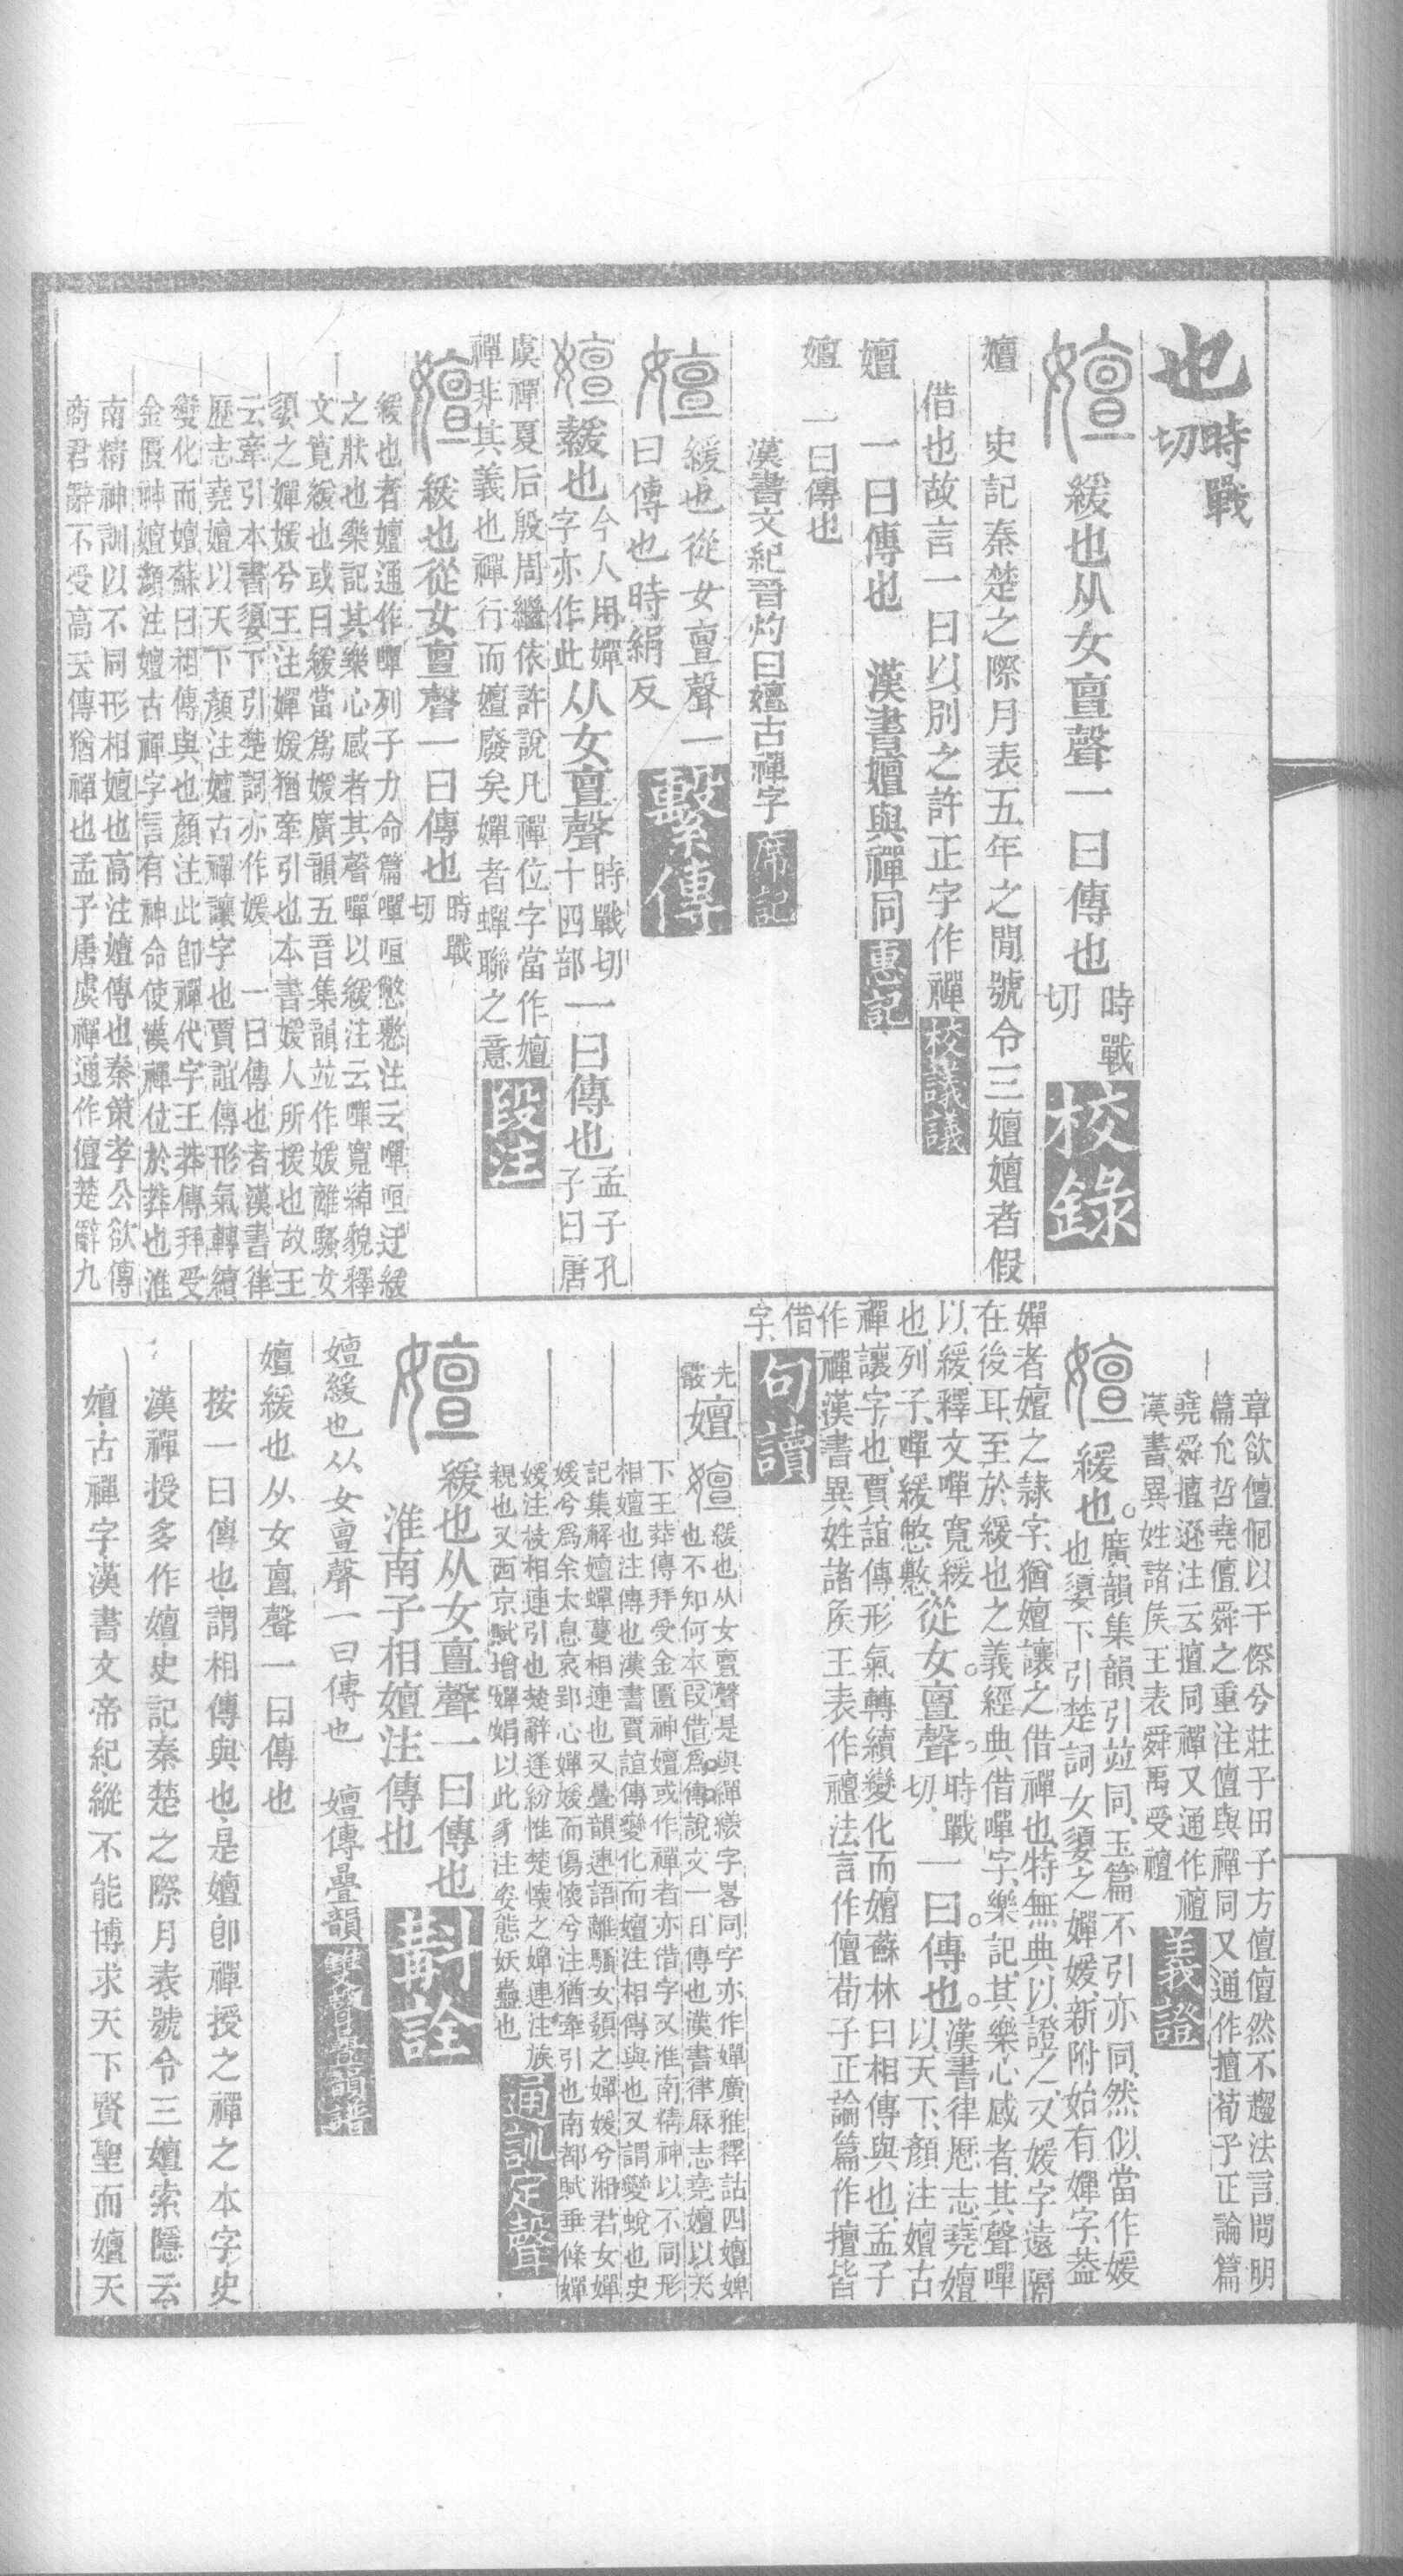 也時戰切
嬗緩也从女亶聲一曰傳也時戰切 校錄
嬗 史記秦楚之際月表五年之閒號令三嬗嬗者假
借也故言一曰以別之許正字作禪 校議議
嬗 一曰傳也 漢書嬗與禪同 惠記
嬗 一曰傳也
漢書文紀晉灼曰嬗古禪字 席記
嬗緩也從女亶聲一
曰傳也時絹反 繫傳
嬗緩也今人用嬋字亦作此从女亶聲時戰切十四部一曰傳也孟子孔子曰唐
虞禪夏后殷周繼依許說凡禪位字當作嬗
禪非其義也禪行而嬗廢矣嬋者蟬聯之意 段注
嬗緩也從女亶聲一曰傳也時戰切
緩也者嬗通作嘽列子力命篇嘽咺憋懯注云嘽咺迂緩
之狀也樂記其樂心感者其聲嘽以緩注云嘽寬綽貌釋
文寬緩也或曰緩當爲媛廣韻五音集韻並作媛離騷女
嬃之嬋媛兮王注嬋媛猶牽引也本書媛人所援也故王
云牽引本書嬃下引楚詞亦作媛 一曰傳也者漢書律
歷志堯嬗以天下顏注嬗古禪讓字也賈誼傳形氣轉續
變化而嬗蘇曰相傳與也顏注此卽禪代字王莽傳拜受
金匱神嬗顏注嬗古禪字言有神命使漢禪位於莽也淮
南精神訓以不同形相嬗也高注嬗傳也秦策孝公欲傳
商君辭不受高云傳猶禪也孟子唐虞禪通作儃楚辭九
章欲儃佪以干傺兮莊子田子方儃儃然不趨法言問明
篇允哲堯儃舜之重注儃與禪同又通作擅荀子正論篇
堯舜擅遜注云擅同禪又通作襢
漢書異姓諸侯王表舜禹受襢 義證
嬗緩也。廣韻集韻引竝同、玉篇不引亦同、然似當作媛
也嬃下引楚詞女嬃之嬋媛、新附始有嬋字、葢
嬋者嬗之隸字、猶嬗讓之借禪也、特無典以證之、又媛字遠隔
在後耳、至於緩也之義經典借嘽字、樂記、其樂心感者、其聲嘽
以緩、釋文嘽寬緩
也、列子、嘽緩憋懯從女亶聲。時戰切、一曰。傳也。漢書律厤志、堯嬗以天下、顏注嬗古
禪讓字也、賈誼傳、形氣轉續變化而嬗蘇林曰相傳與也、孟子
作禪漢書異姓諸侯王表作襢法言作儃荀子正論篇作擅皆
借字、 句讀
嬗緩也从女亶聲是與繟繎字畧同字亦作嬋廣雅釋詁四嬗婢
也不知何本叚借爲傳說文一曰傳也漢書律厤志堯嬗以天
下王莽傳拜受金匱神嬗或作禪者亦借字又淮南精神以不同形
相嬗也注傳也漢書賈誼傳變化而嬗注相傳與也又謂變蛻也史
記集解嬗蟬蔓相連也又疊韻連語離騷女嬃之嬋媛兮湘君女嬋
媛兮爲余太息哀郢心嬋媛而傷懷兮注猶牽引也南都賦垂條嬋
媛注枝相連引也楚辭逢紛惟楚懷之嬋連注族
親也又西京賦增嬋娟以此豸注姿態妖蠱也 通訓定聲
嬗緩也从女亶聲一曰傳也
淮南子相嬗注傳也 斠詮
嬗緩也从女亶聲一曰傳也 嬗傳疊韻 雙聲疊韻譜
嬗緩也从女亶聲一曰傳也
按一曰傳也謂相傳與也是嬗卽禪授之禪之本字史
漢禪授多作嬗史記秦楚之際月表號令三嬗索隱云
嬗古禪字漢書文帝紀縱不能博求天下賢聖而嬗天